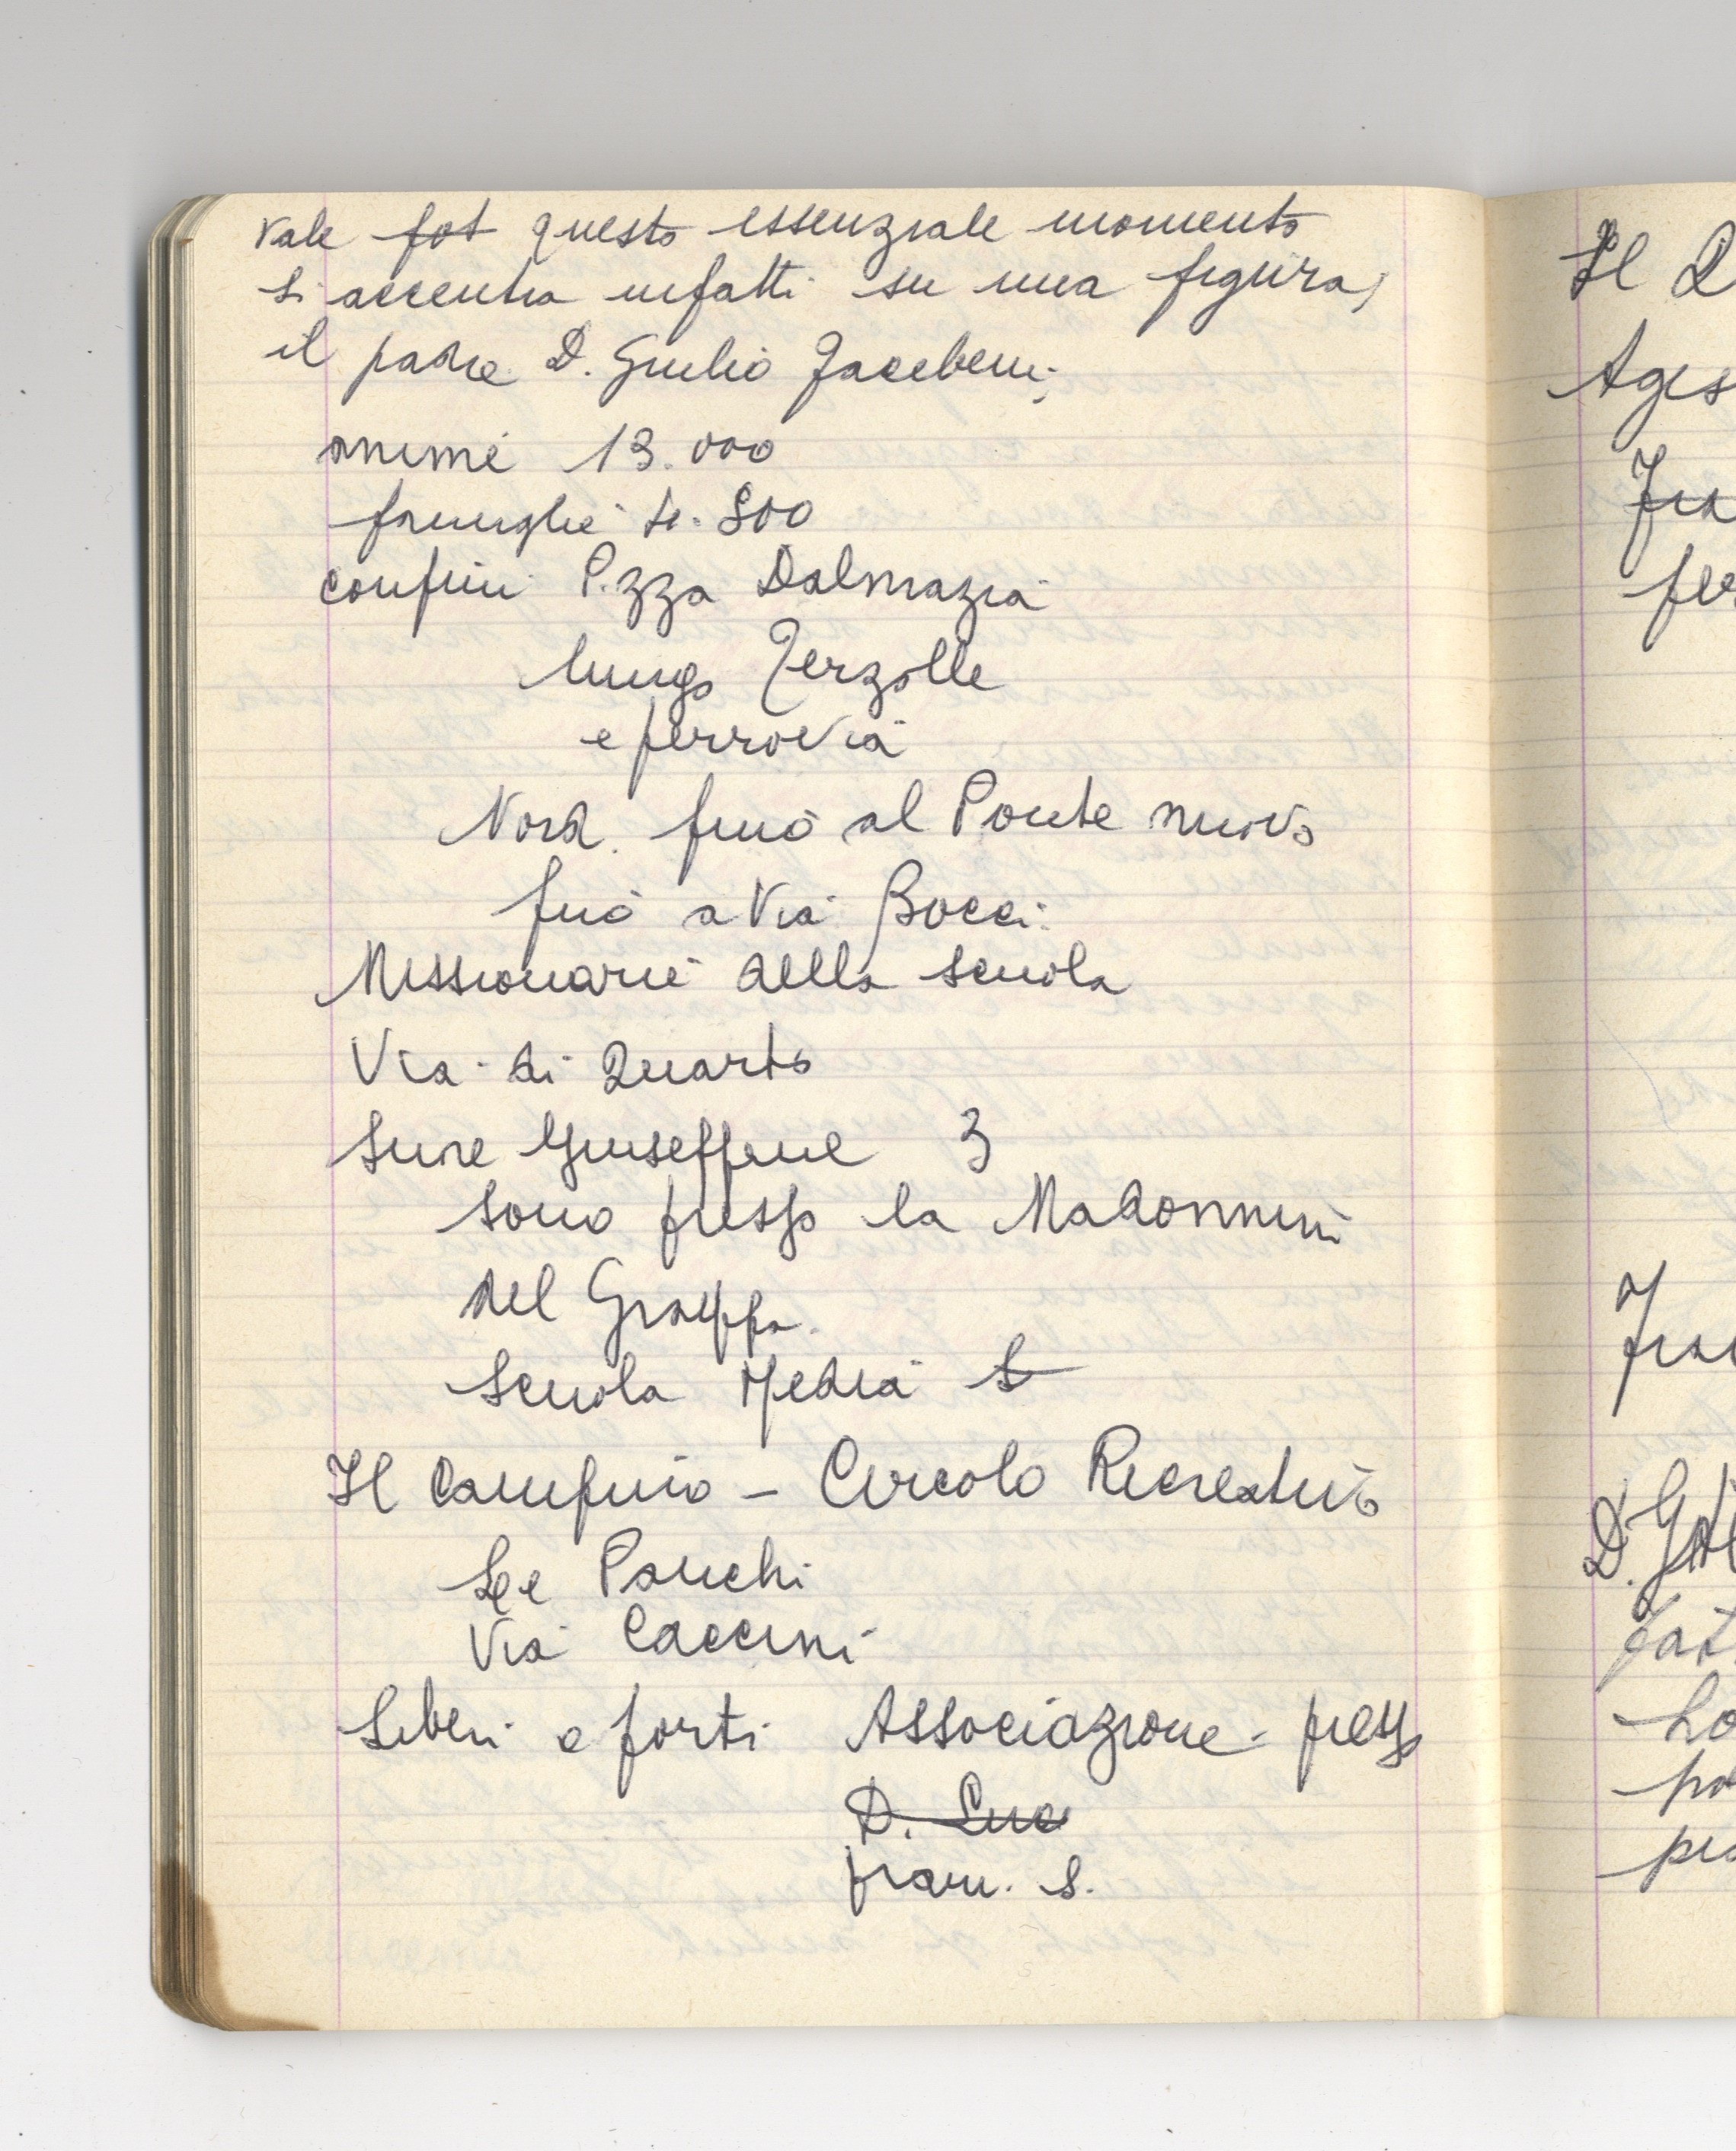 vale fot questo essenziale momento
si accentra infatti su una figura,
il padre D. Giulio Facibeni;
anime 13.000
famiglie 4.800
confini P.zza Dalmazia
lungo Terzolle
e ferrovia
Nord. fino al Ponte nuovo
fino a Via Bocci.
Missionarie della scuola
Via di Quarto
Suore Giuseppine 3
sono presso la Madonnina
del Grappa.
Scuola Media S
Il Campino - Circolo Ricreativo
Le Panche
Via Caccini
Liberi e forti Associazione - presso
D. Luca
fram. S.
Il
Ages
fra
fer
D.
fat
ho
po